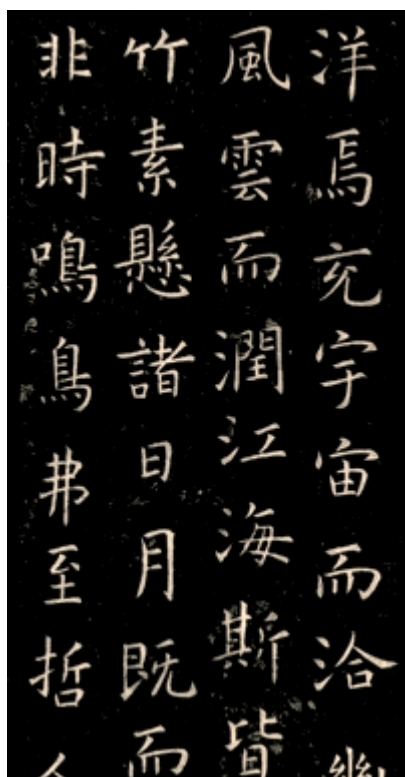 洋焉充宇宙而洽幽
風雲而潤江海斯皆
竹素懸諸日月既而
非時鳴鳥弗至哲人